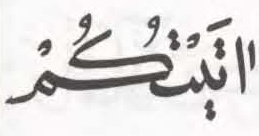 ااتَيْتُكُمْ